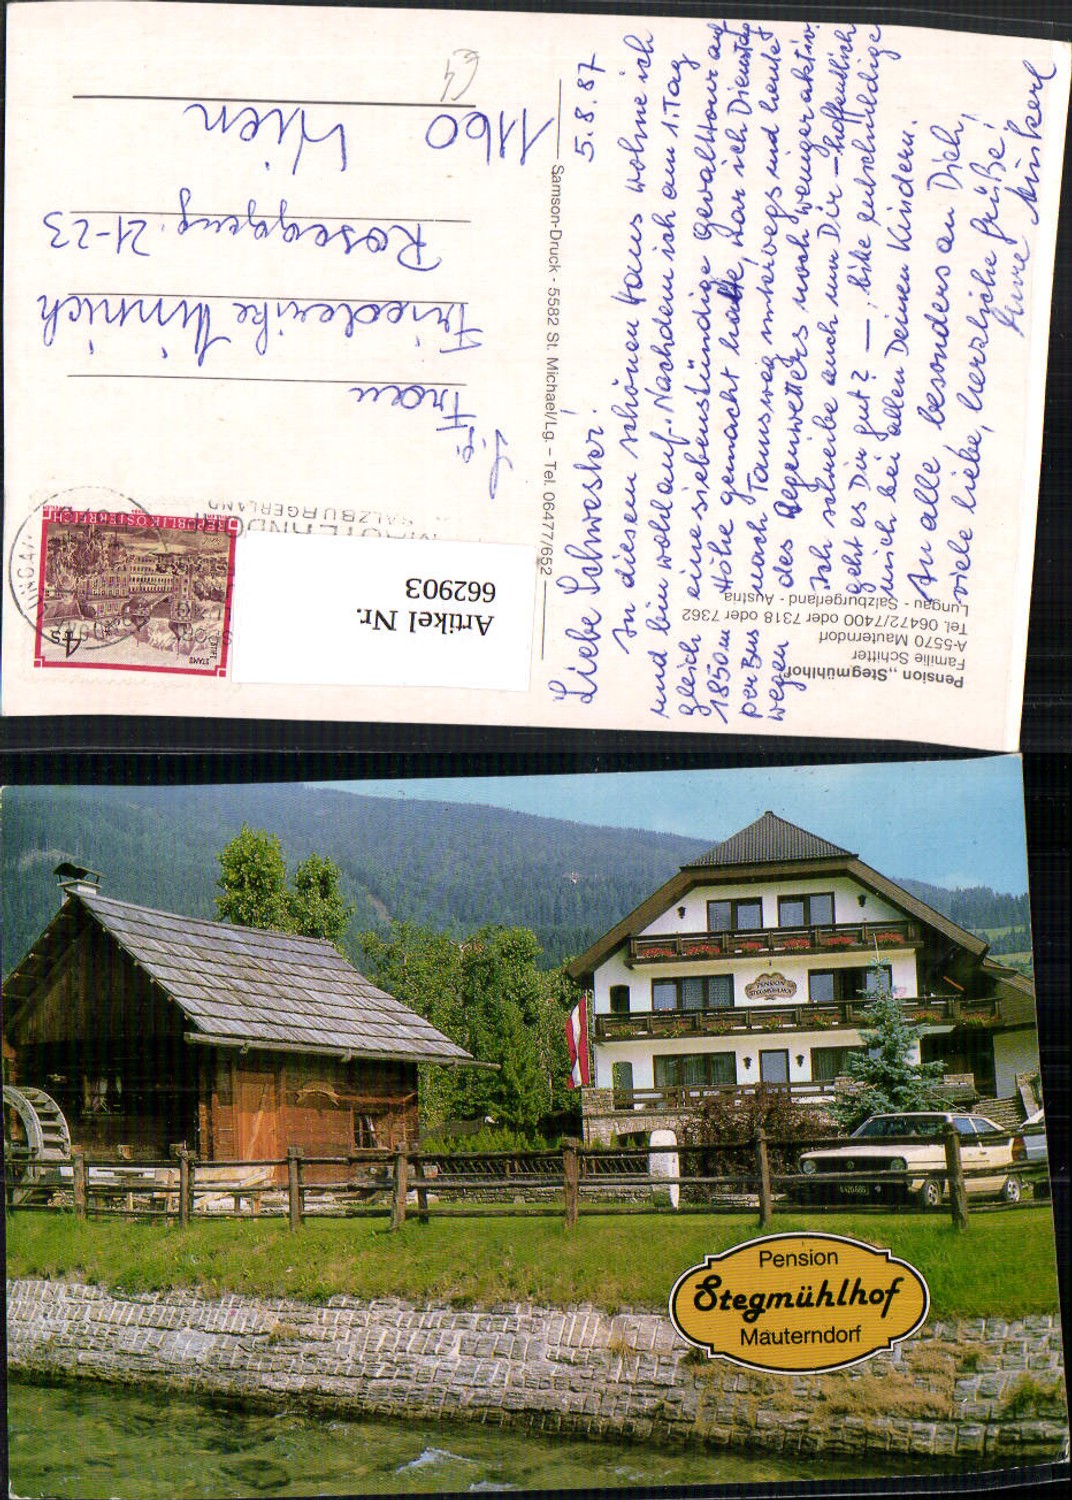 5.8.87
Liebe Schwester!
In diesem schönen Haus wohne ich
und bin wohlauf. Nachdem ich am 1. Tag
gleich eine siebenstündige Gewalttour auf
1850m Höhe gemacht hatte, war ich Dienstag
per Bus nach Tamsweg unterwegs und heute
wegen des Regenwetters noch weniger aktiv.
Ich schreibe auch nur Dir – hoffentlich
geht es Dir gut? – , bitte entschuldige
mich bei allen Deinen Kindern.
An alle, besonders an Dich,
viele liebe, herzliche Grüße!
Eure
Pension „Stegmühlhof“
Familie Schitter
A-5570 Mauterndorf
Tel. 06472/7400 oder 7318 oder 7362
Lungau - Salzburgerland - Austria
Samson-Druck - 5582 St. Michael/Lg. – Tel. 06477/652
Artikel Nr.
662903
REPUBLIK ÖSTERREICH
STIFT
STAMS
4 S
MAUTERNDORF
SALZBURGERLAND
Frau
Friederike
Roseggerg. 21-23
1160 Wien
PENSION
STEGMÜHLHOF
Pension
Stegmühlhof
Mauterndorf